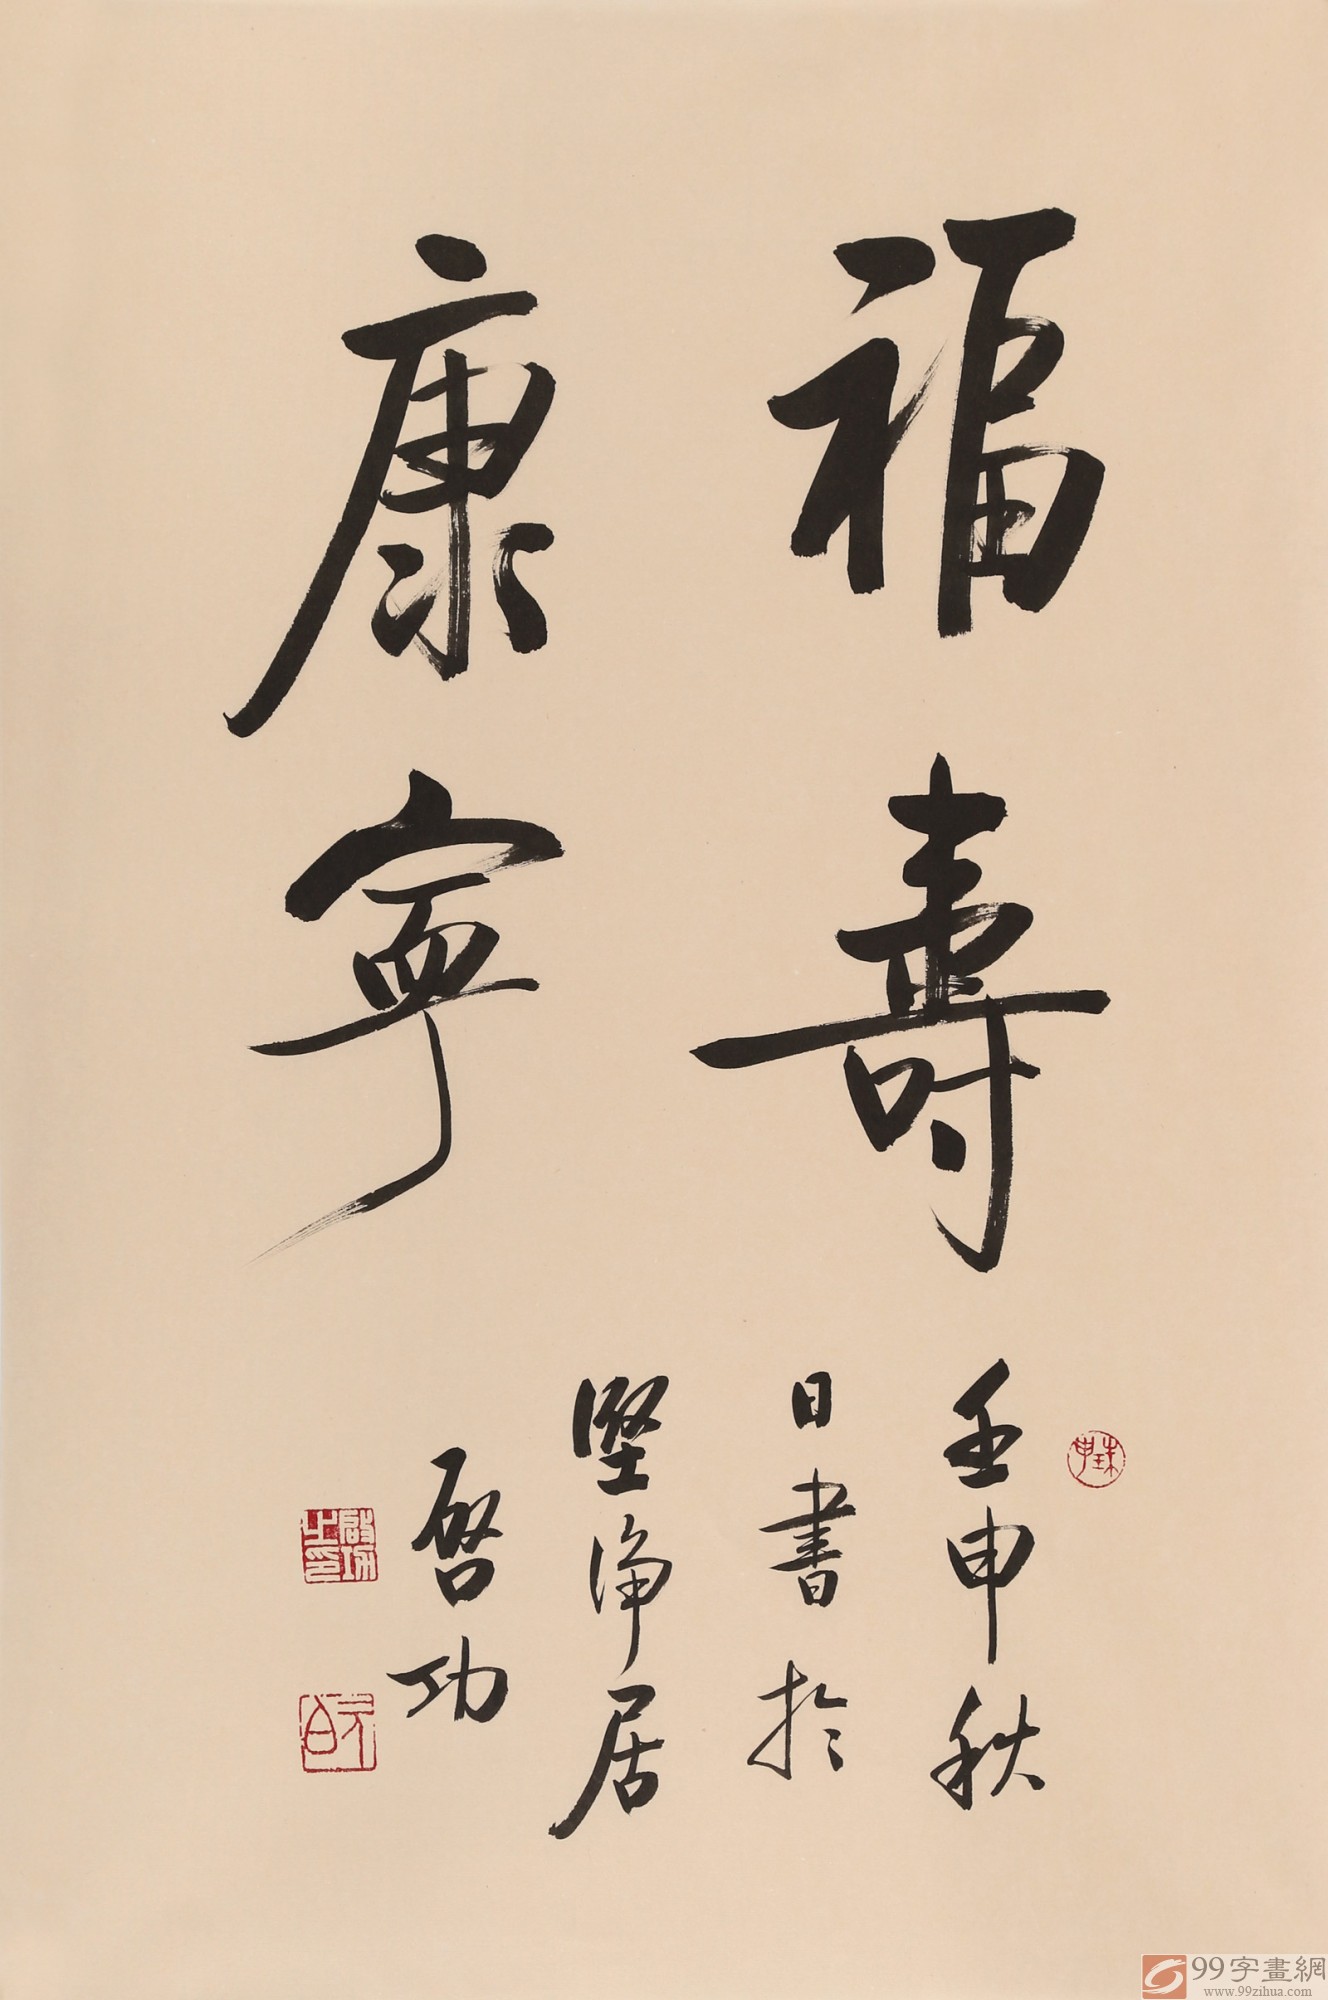 福壽
康寧
壬申秋
日書於
堅净居
啓功
啟功之印
元白
99字畫網
www.99zihua.com